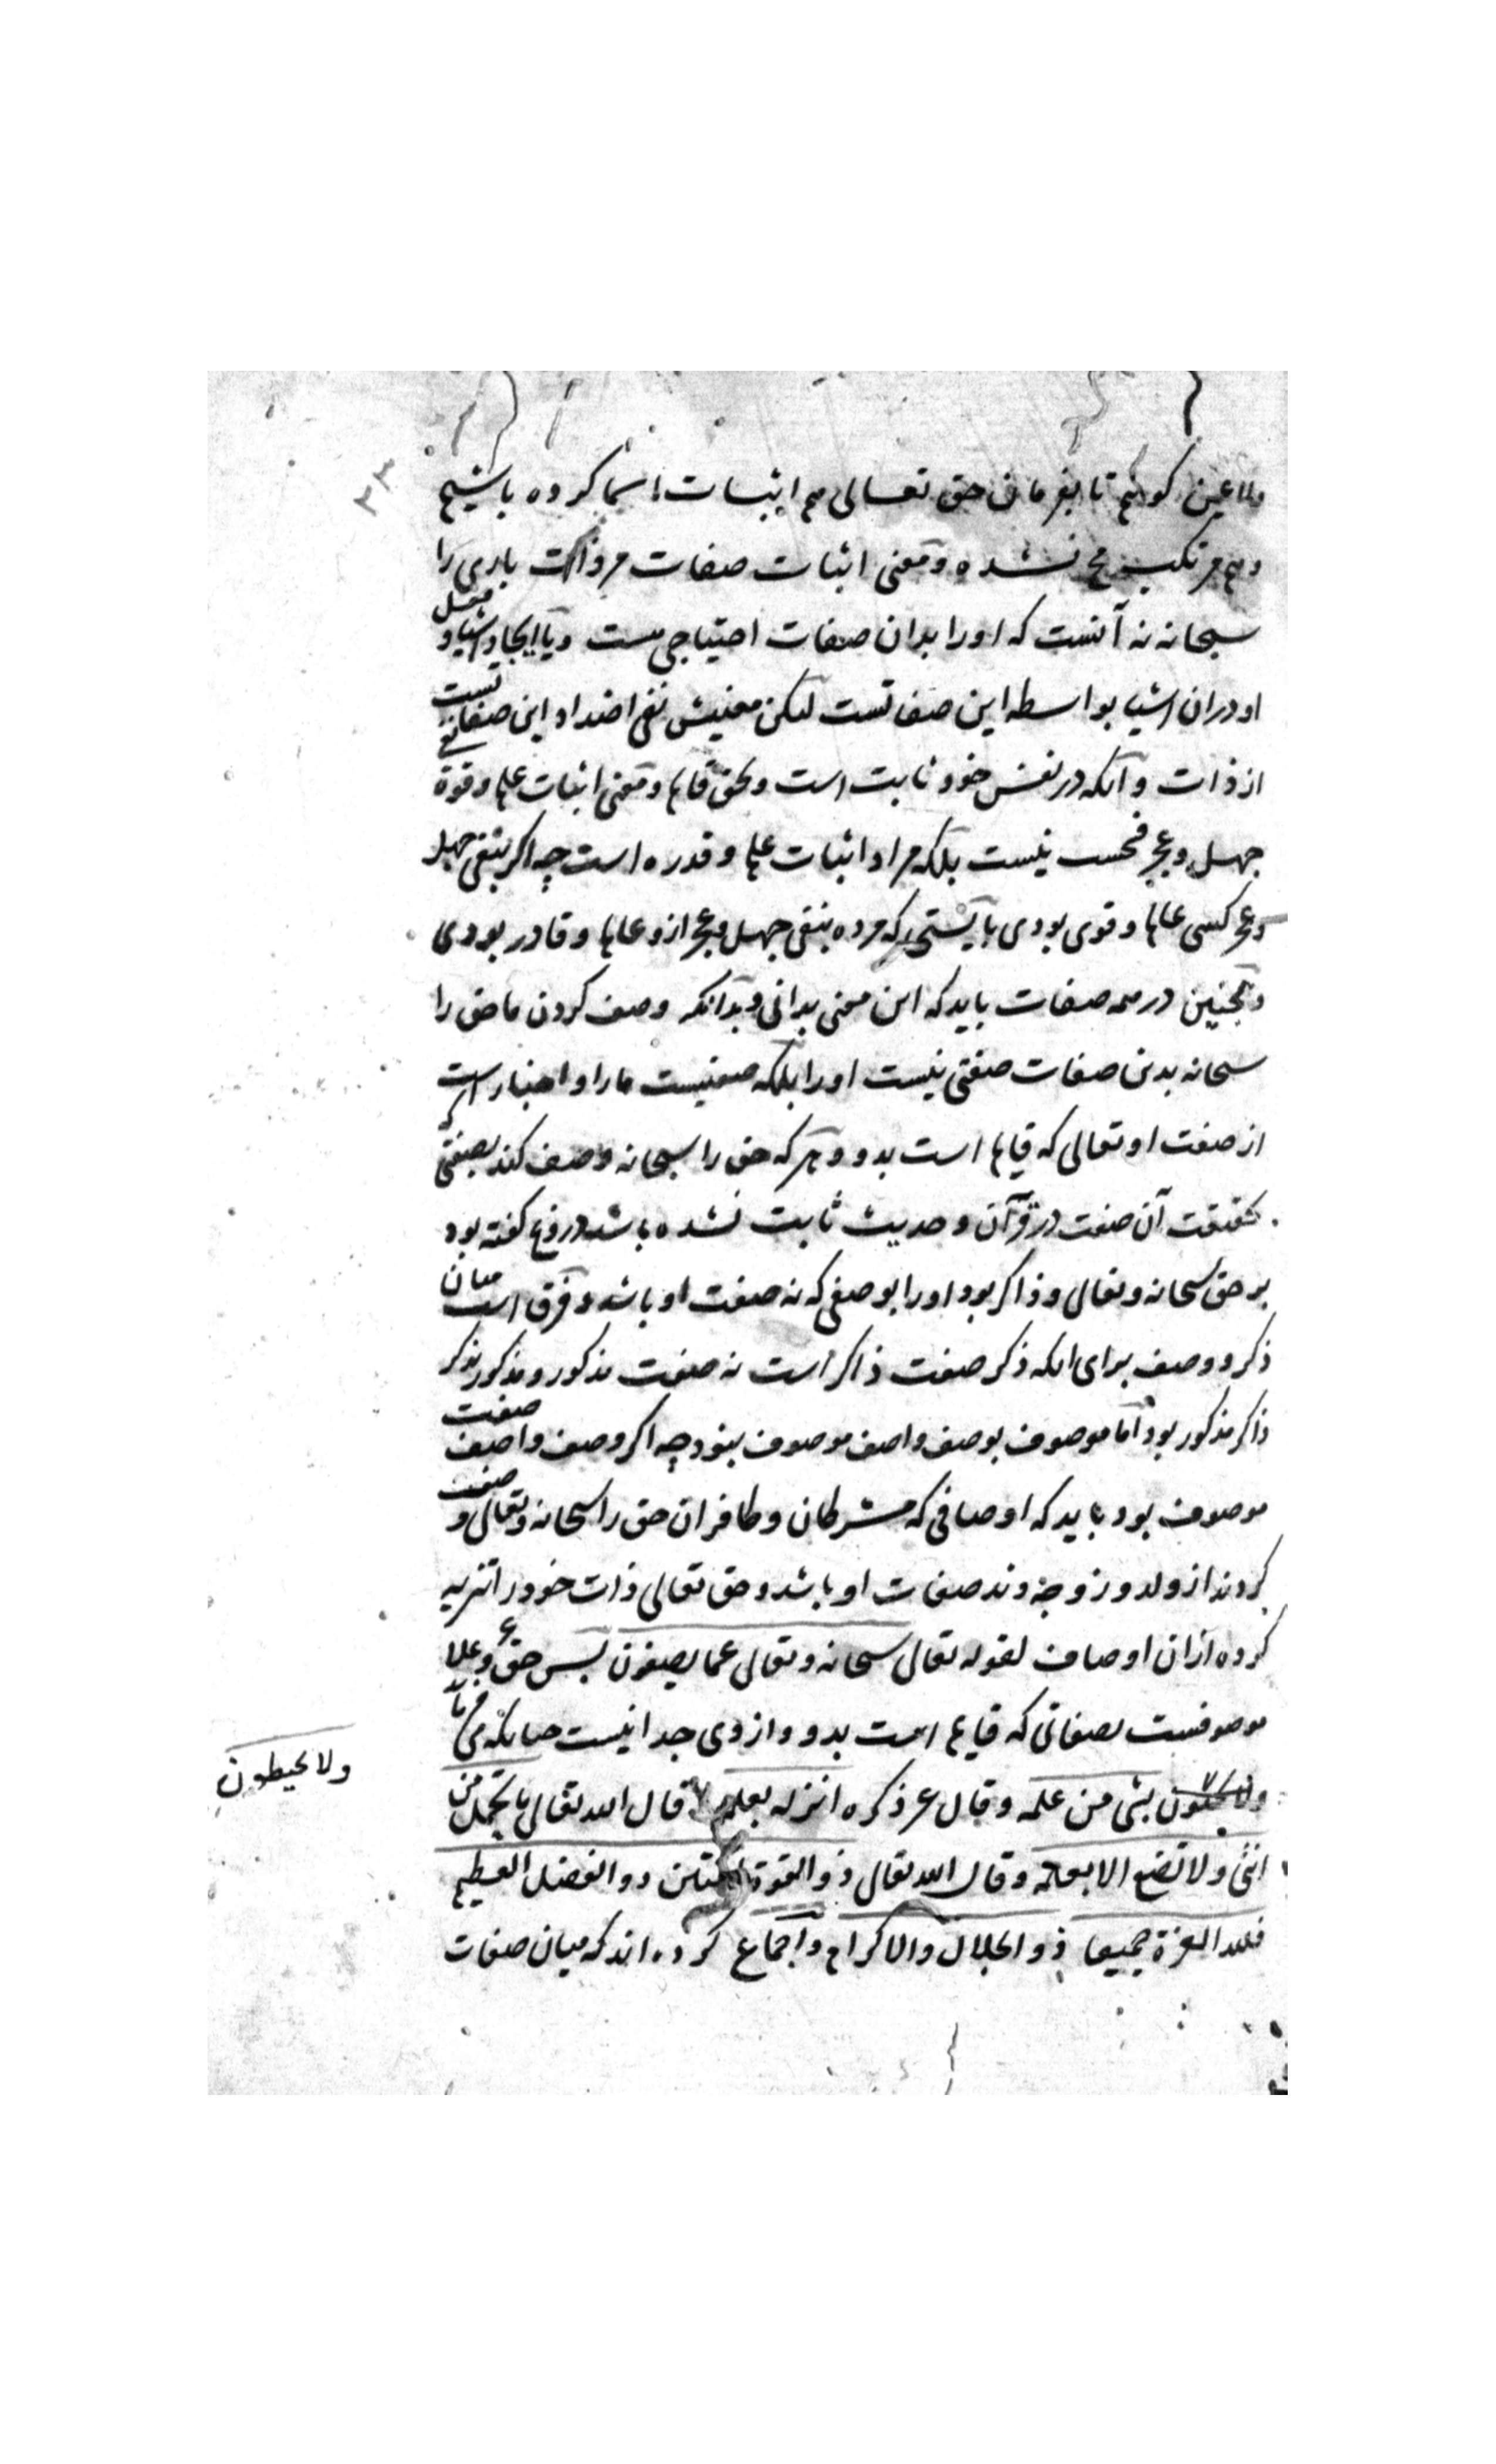 ولا عین کوئیم تا بفرمان حق تعالی هم اثبات اسما کرده باشیم
و هم مرتکب نشده و معنی اثبات صفات مر ذات باری را
سبحانه نه آنست که او را بدان صفات احتیاجی هست و یا ایجاد اشیا و فعل
او در ان اشیا بواسطه این صفاتست لیکن معنیش نفی اضداد این صفاتست
از ذات و آنکه در نفس خود ثابت است و بحق قایم و معنی اثبات علم و قوة نفی
جهل و عجز فحسب نیست بلکه مراد اثبات علم و قدره است چه اکر بنفی جهل
و عجز کسی عالم و قوی بودی بایستی که مرده بنفی جهل و عجز ازو عالم و قادر بودی
و همجنین در همه صفات باید که این معنی بدانی و بدانکه وصف کردن ما حق را
سبحانه بدین صفات صفتی نیست او را بلکه صفتیست ما را و اخبار است
از صفت او تعالی که قایم است بدو و هر که حق را سبحانه وصف کند بصفتی که
بحقیقت آن صفت در قرآن و حدیث ثابت نشده باشد دروغ کفته بود
بر حق سبحانه و تعالی و ذاکر بود او را بوصفی که نه صفت او باشد و فرق است میان
ذکر و وصف برای انکه ذکر صفت ذاکر است نه صفت مذکور و مذکور بذکر
ذاکر مذکور بود اما موصوف بوصف واصف موصوف نبود چه اکر وصف واصف صفت
موصوف بود باید که اوصافی که مشرکان و کافران حق را سبحانه و تعالی و صفت
کردند از ولد و زوجه و ند صفات او باشد و حق تعالی ذات خود را تنزیه
کرده از ان اوصاف لقوله تعالی سبحانه و تعالی عما یصفون پس حق و علا
موصوفست بصفاتی که قایم است بدو و از وی جدا نیست چنانکه می
بشی من علمه و قال عز ذکره انزله بعلمه قال الله تعالی ما تحمل من
انثی ولا تضع الا بعلمه و قال الله تعالی ذو القوة المتین ذو الفضل العظیم
فلله العزة جمیعا ذو الجلال والاکرام و اجماع کرده اند که میان صفات
ولا یحیطون
۳۳